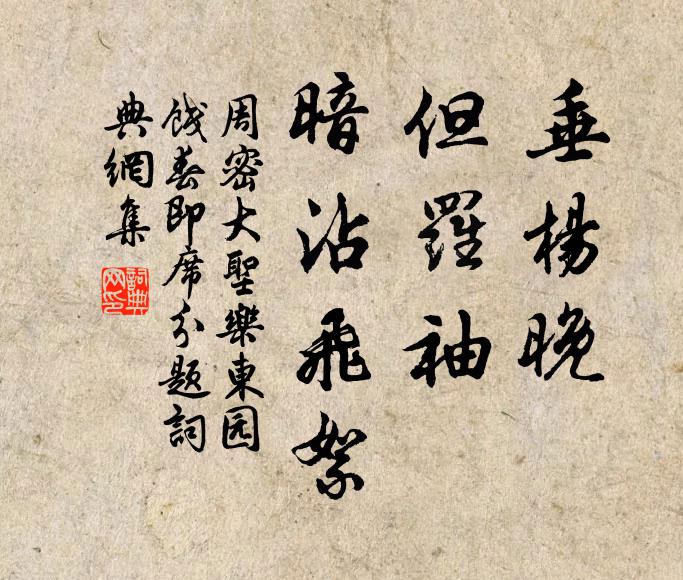 垂楊晚
但羅袖
暗沾飛絮
周密大聖樂東园
餞春即席分题詞
典網集
詞典网印